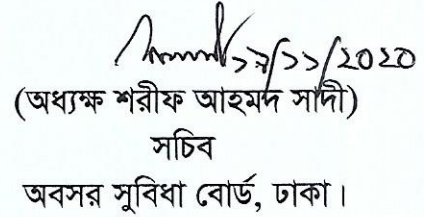 /১১/2020
(অধ্যক্ষ শরীফ আহমদ সাদী)
সচিব
অবসর সুবিধা বোর্ড, ঢাকা।